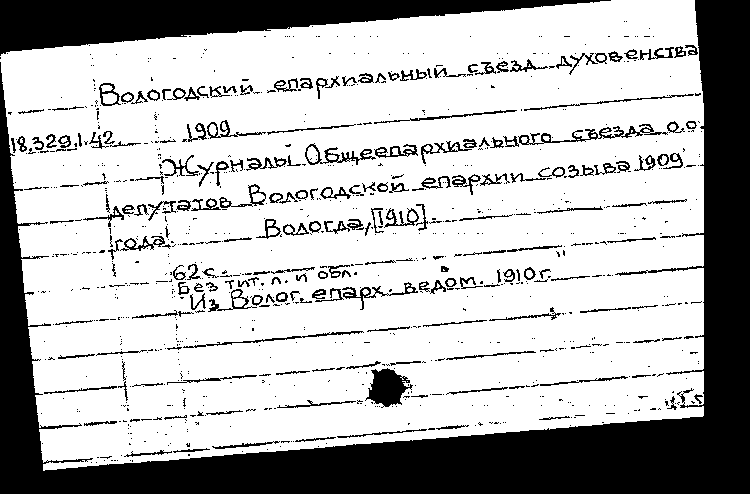 Вологодский епархиальный съезд духовенства
18.329.1.42. 1909.
Журналы Общеепархиального съезда о.о.
депутатов Вологодской епархии созыва 1909
года. Вологда, [1910].
62 с.
Без тит. л. и обл.
Из "Волог. епарх. ведом. 1910 г."